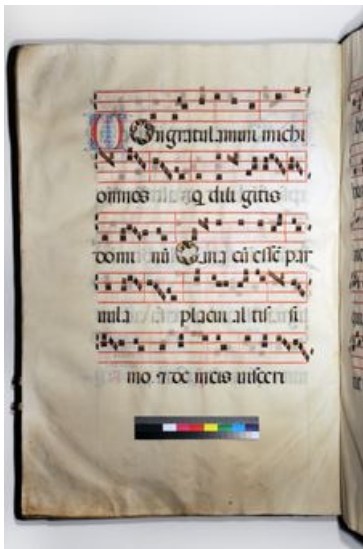 Ongratulamini michi
omnes q̄ dili gitis
domi nū Quia cū essē par
uula placui al tis si
mo. ⁊ de meis uisceri